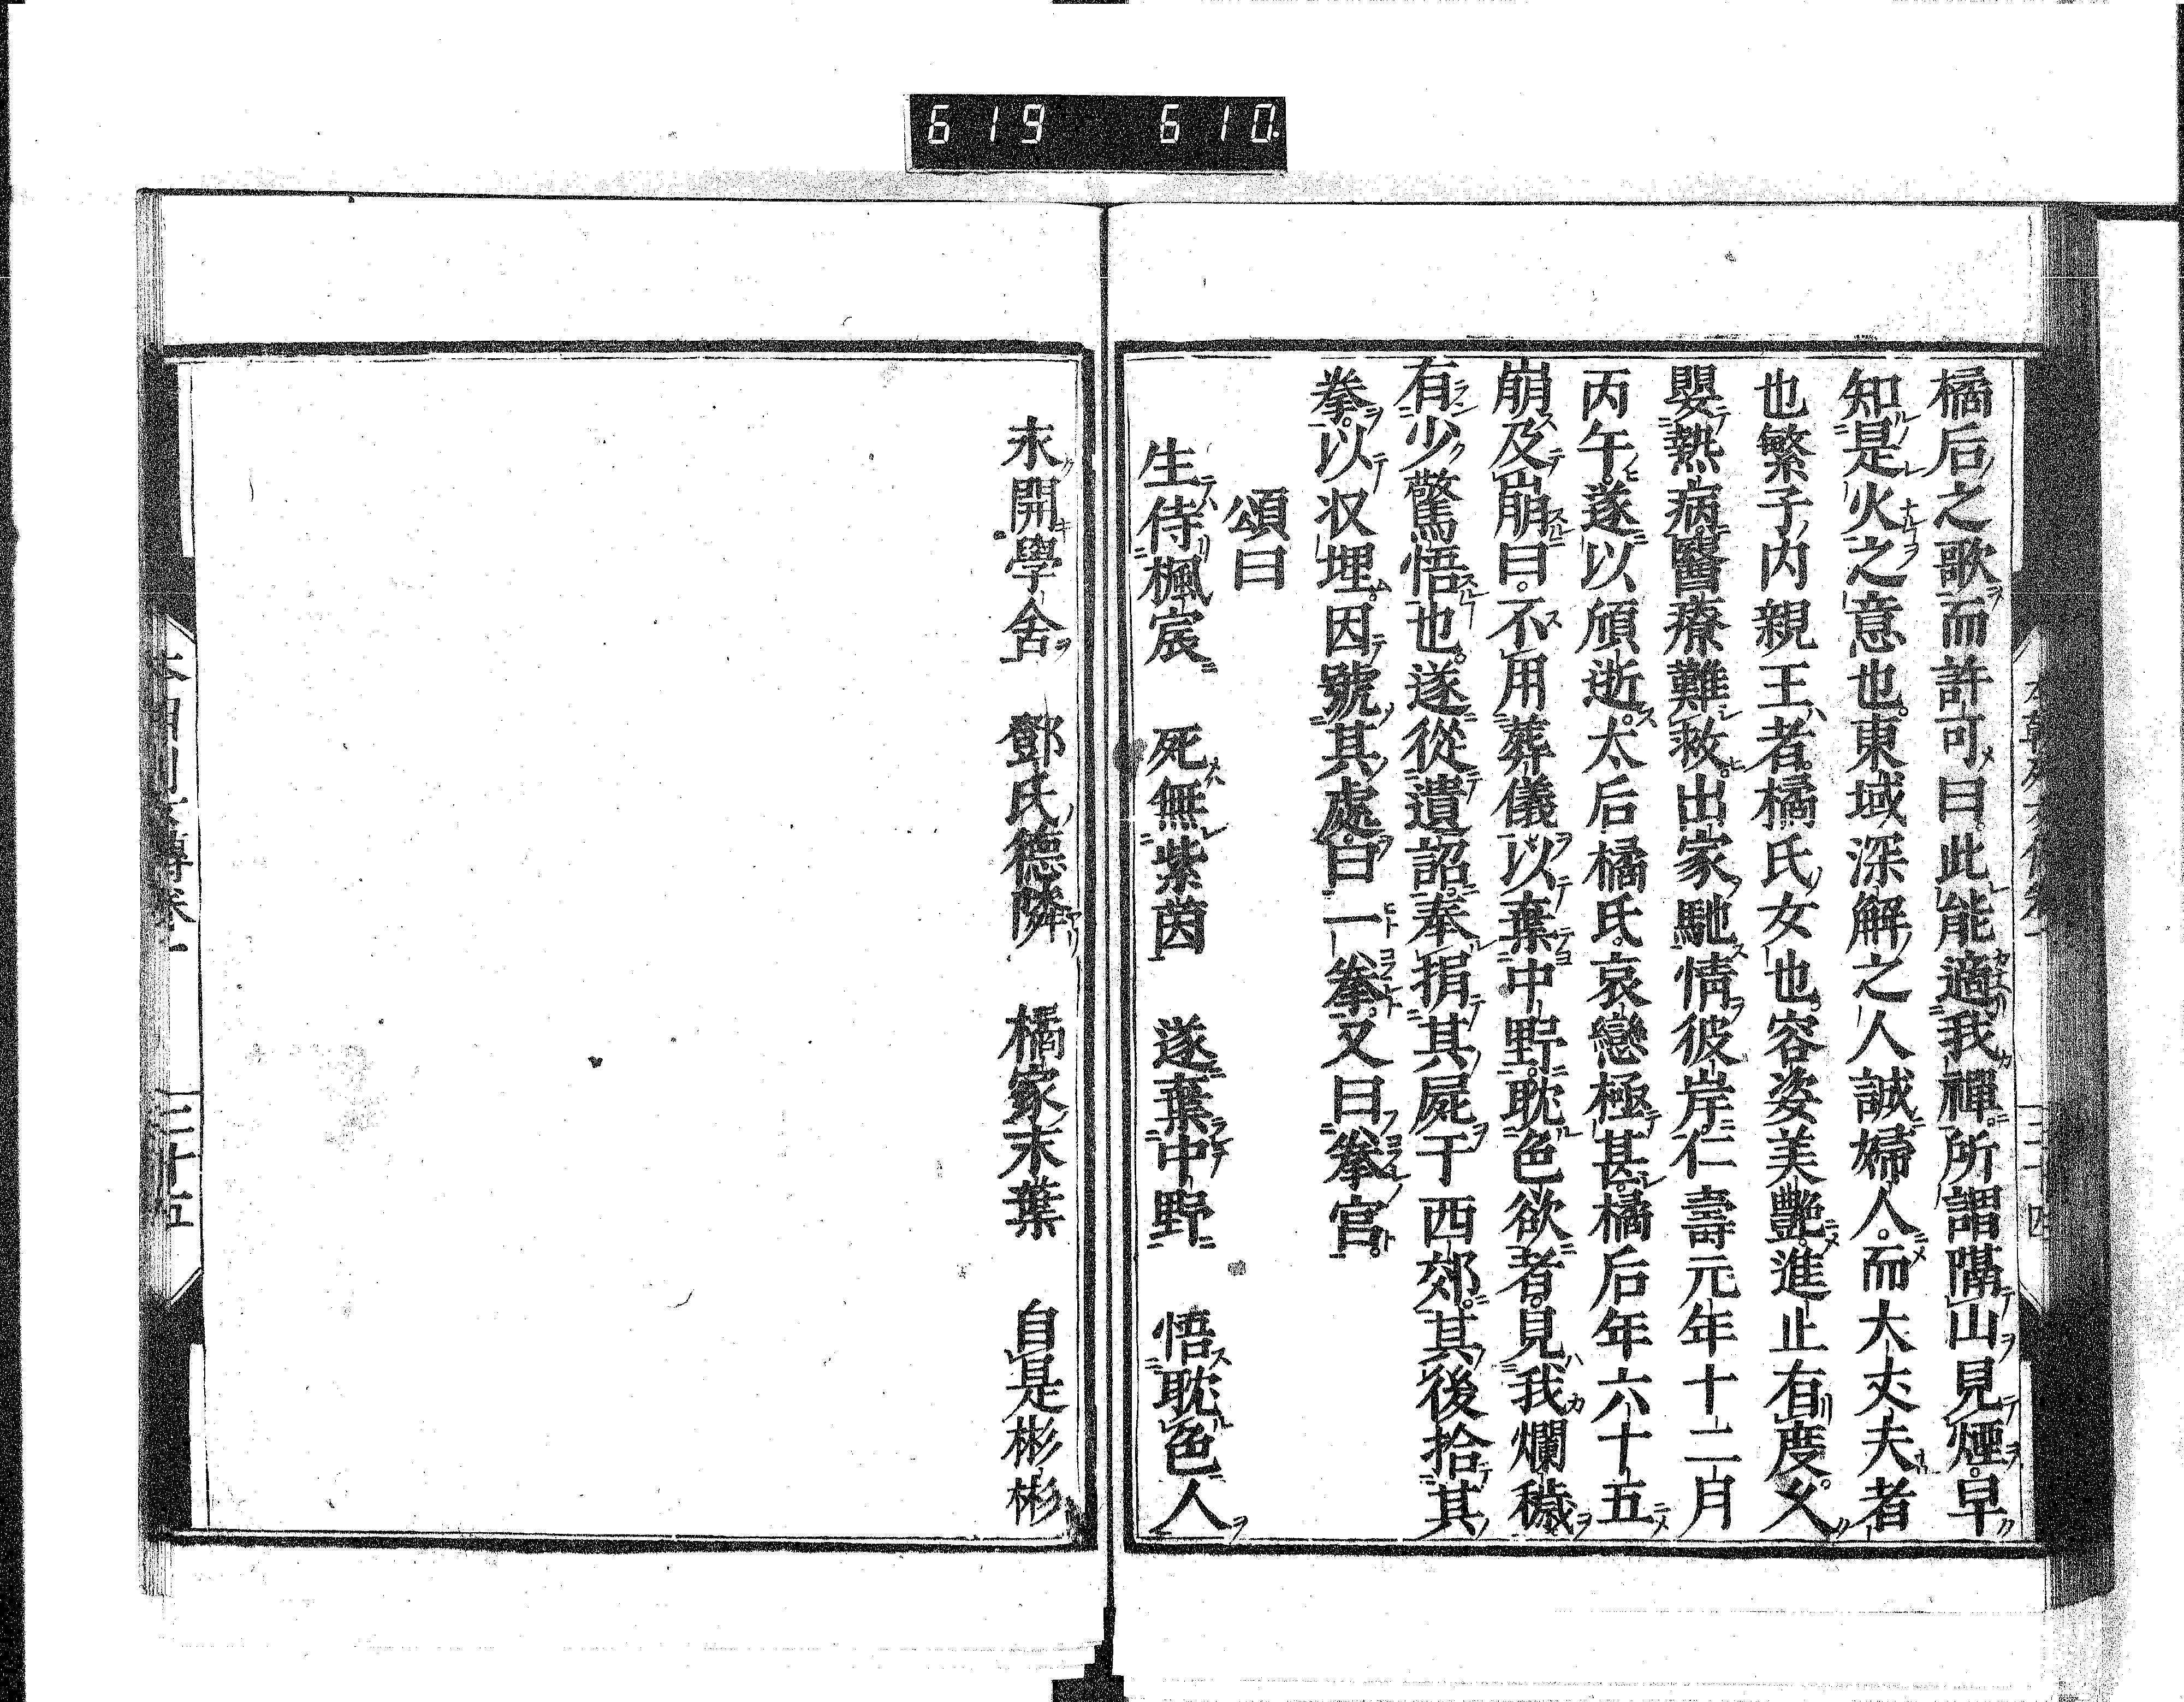 619 610
橘后之歌而許可曰此能適我禪所謂隔山見煙早
知是火之意也東域深解之人誠婦人而大丈夫者
也繁子内親王者橘氏女也容姿美艷進止有度久
嬰熱病醫療難救出家馳情彼岸仁壽元年十二月
丙午遂以頎逝太后橘氏哀戀極甚橘后年六十五
崩及崩曰不用葬儀以棄中野耽色欲者見我爛穢
有少驚悟也遂從遺詔奉捐其屍于西郊其後拾其
拳以収埋因號其處曰一拳又曰拳宮
頌曰
生侍楓宸 死無紫茵 遂棄中野 悟耽色人
永開學舍 鄧氏德隣 橘家末葉 自是彬彬
三十五